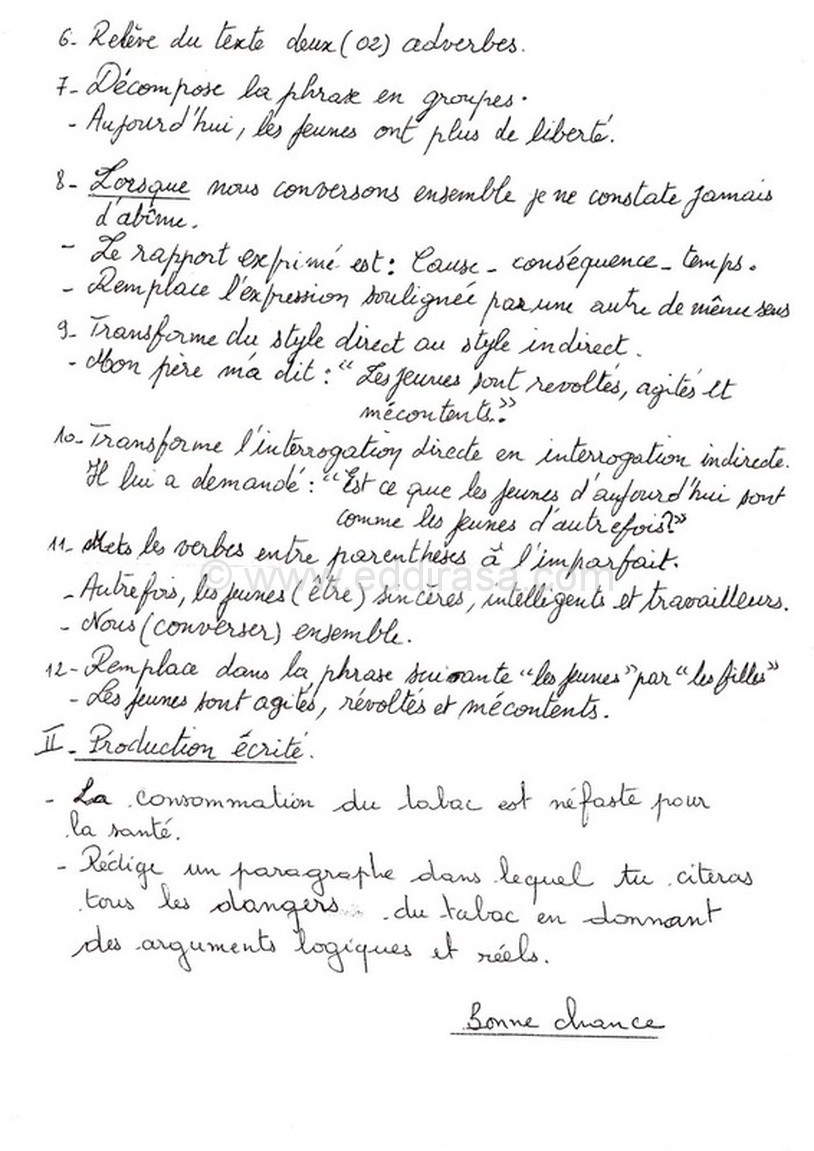 6- Relève du texte deux (02) adverbes.
7- Décompose la phrase en groupes.
- Aujourd'hui, les jeunes ont plus de liberté.
8- Lorsque nous conversons ensemble je ne constate jamais
d'abîme.
- Le rapport exprimé est : Cause - conséquence - temps.
- Remplace l'expression soulignée par une autre de même sens
9- Transforme du style direct au style indirect.
- Mon père m'a dit : "Les jeunes sont revoltés, agités et
mécontents."
10- Transforme l'interrogation directe en interrogation indirecte.
Il lui a demandé : "Est ce que les jeunes d'aujourd'hui sont
comme les jeunes d'autrefois?"
11- Mets les verbes entre parenthèses à l'imparfait.
© www.eddirasa.com
- Autrefois, les jeunes (être) sincères, intelligents et travailleurs.
- Nous (converser) ensemble.
12- Remplace dans la phrase suivante "les jeunes" par "les filles"
- Les jeunes sont agités, révoltés et mécontents.
II- Production écrité.
- La consommation du tabac est néfaste pour
la santé.
- Rédige un paragraphe dans lequel tu citeras
tous les dangers du tabac en donnant
des arguments logiques et réels.
Bonne chance